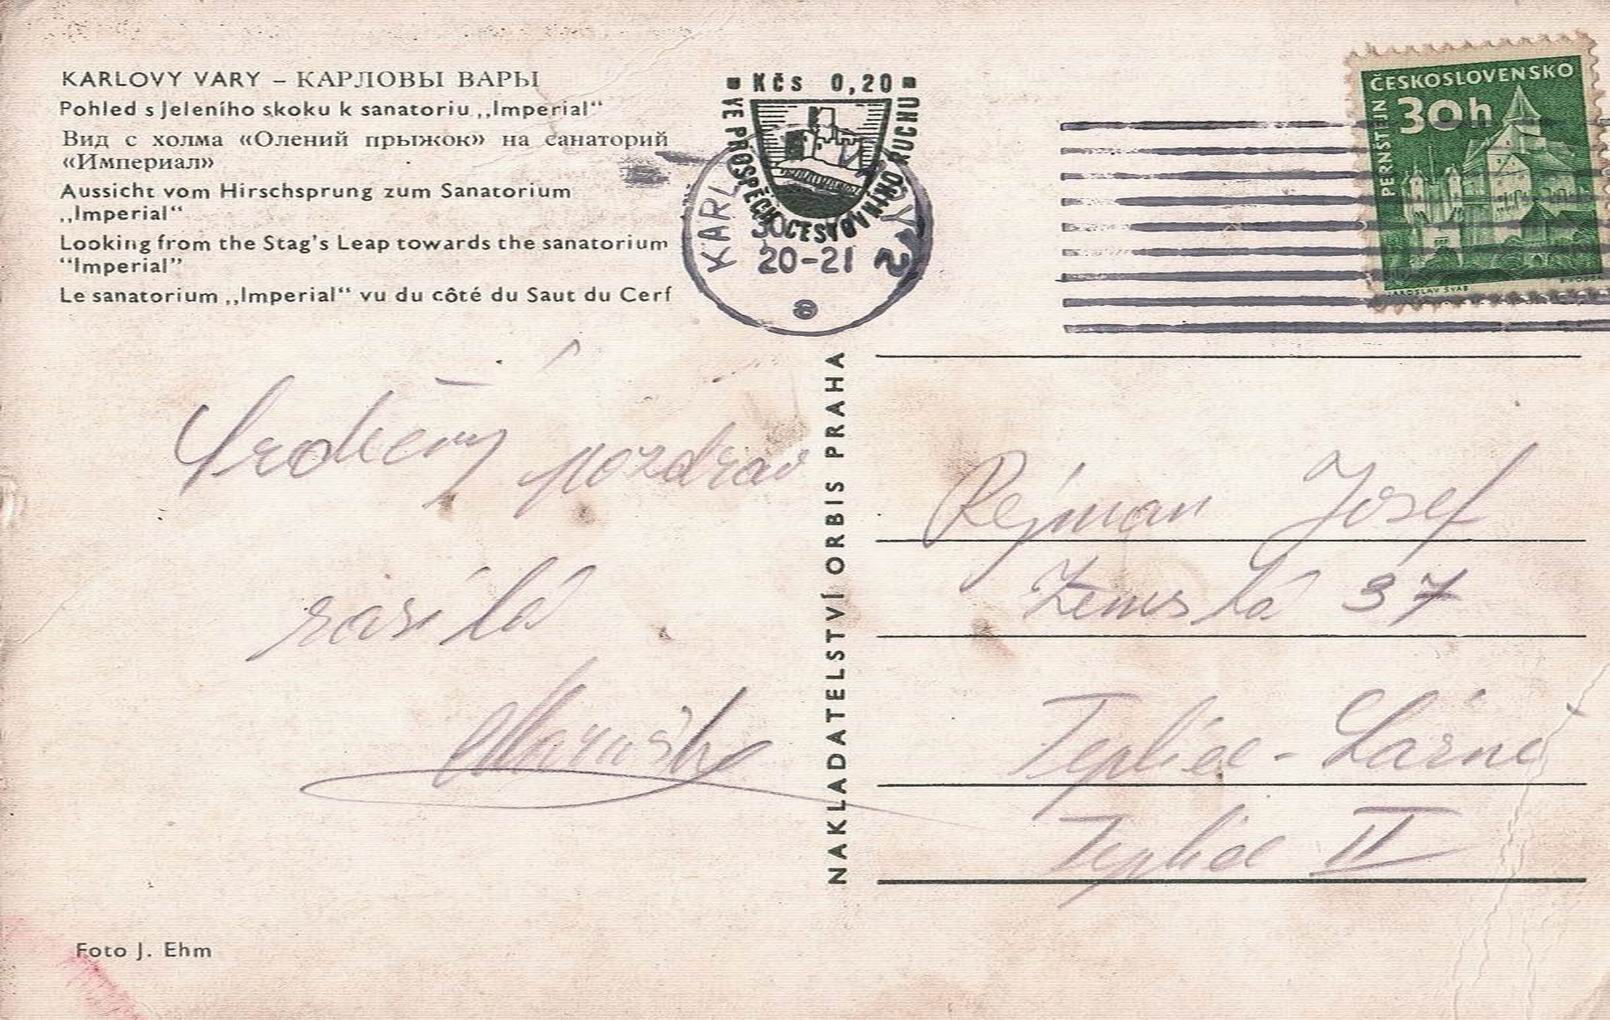 KARLOVY VARY – КАРЛОВЫ ВАРЫ
Pohled s Jeleního skoku k sanatoriu „Imperial“
Вид с холма «Олений прыжок» на санаторий
«Империал»
Aussicht vom Hirschsprung zum Sanatorium
„Imperial“
Looking from the Stag's Leap towards the sanatorium
“Imperial”
Le sanatorium „Imperial“ vu du côté du Saut du Cerf
Kčs 0,20
VE PROSPĚCH CESTOVNÍHO RUCHU
KARL
30
20-21
2
ČESKOSLOVENSKO
30h
PERNŠTEJN
JAROSLAV ŠVÁB
Srdečný pozdrav
zasílá
Maruška
NAKLADATELSTVÍ ORBIS PRAHA
Rejman Josef
Zemská 37
Teplice - Lázně
Teplice II
Foto J. Ehm